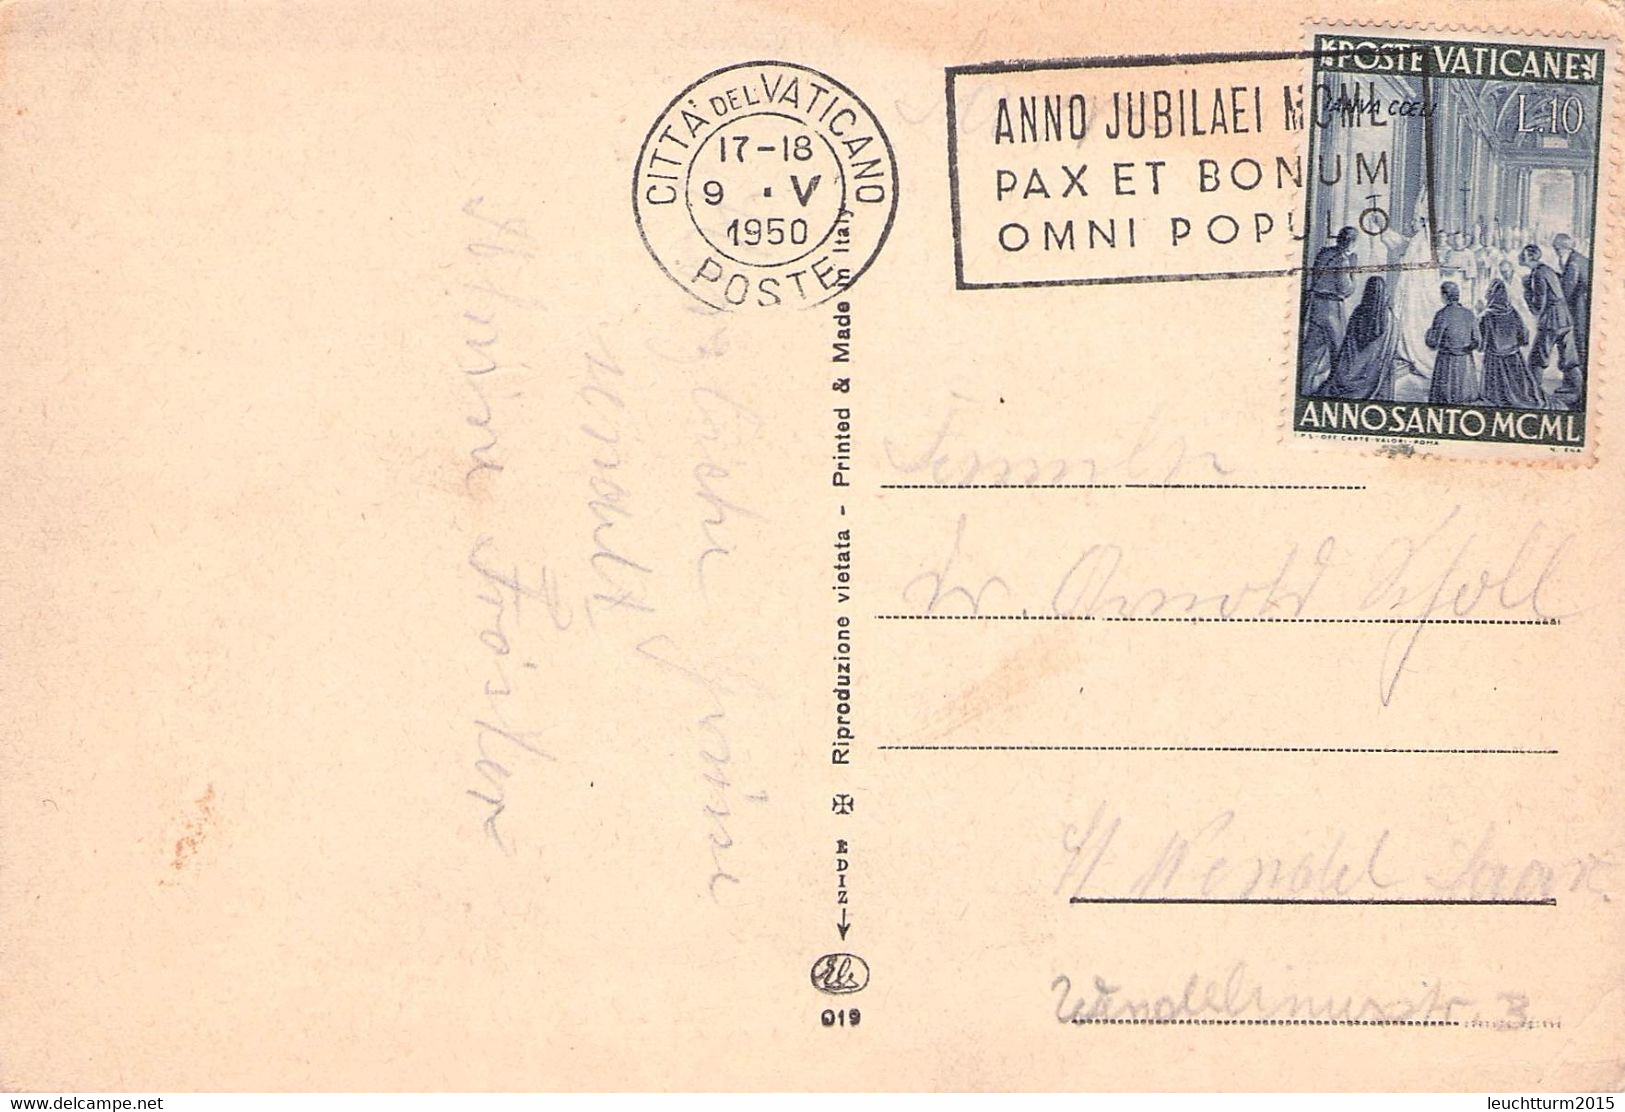 CITTA' DEL VATICANO
17-18
9 . V
1950
POSTE
ANNO JUBILAEI MCML
PAX ET BONUM
OMNI POPULO
POSTE VATICANE
L.10
ANNO SANTO MCML
I.P.S-OFF. CARTE-VALORI-ROMA
Riproduzione vietata - Printed & Made in Italy
EDIZ
019
Familie
Dr. Arnold Scholl
St Wendel Saar.
Wendelinusstr. 3
Herzliche Grüsse
leuchtturm2015